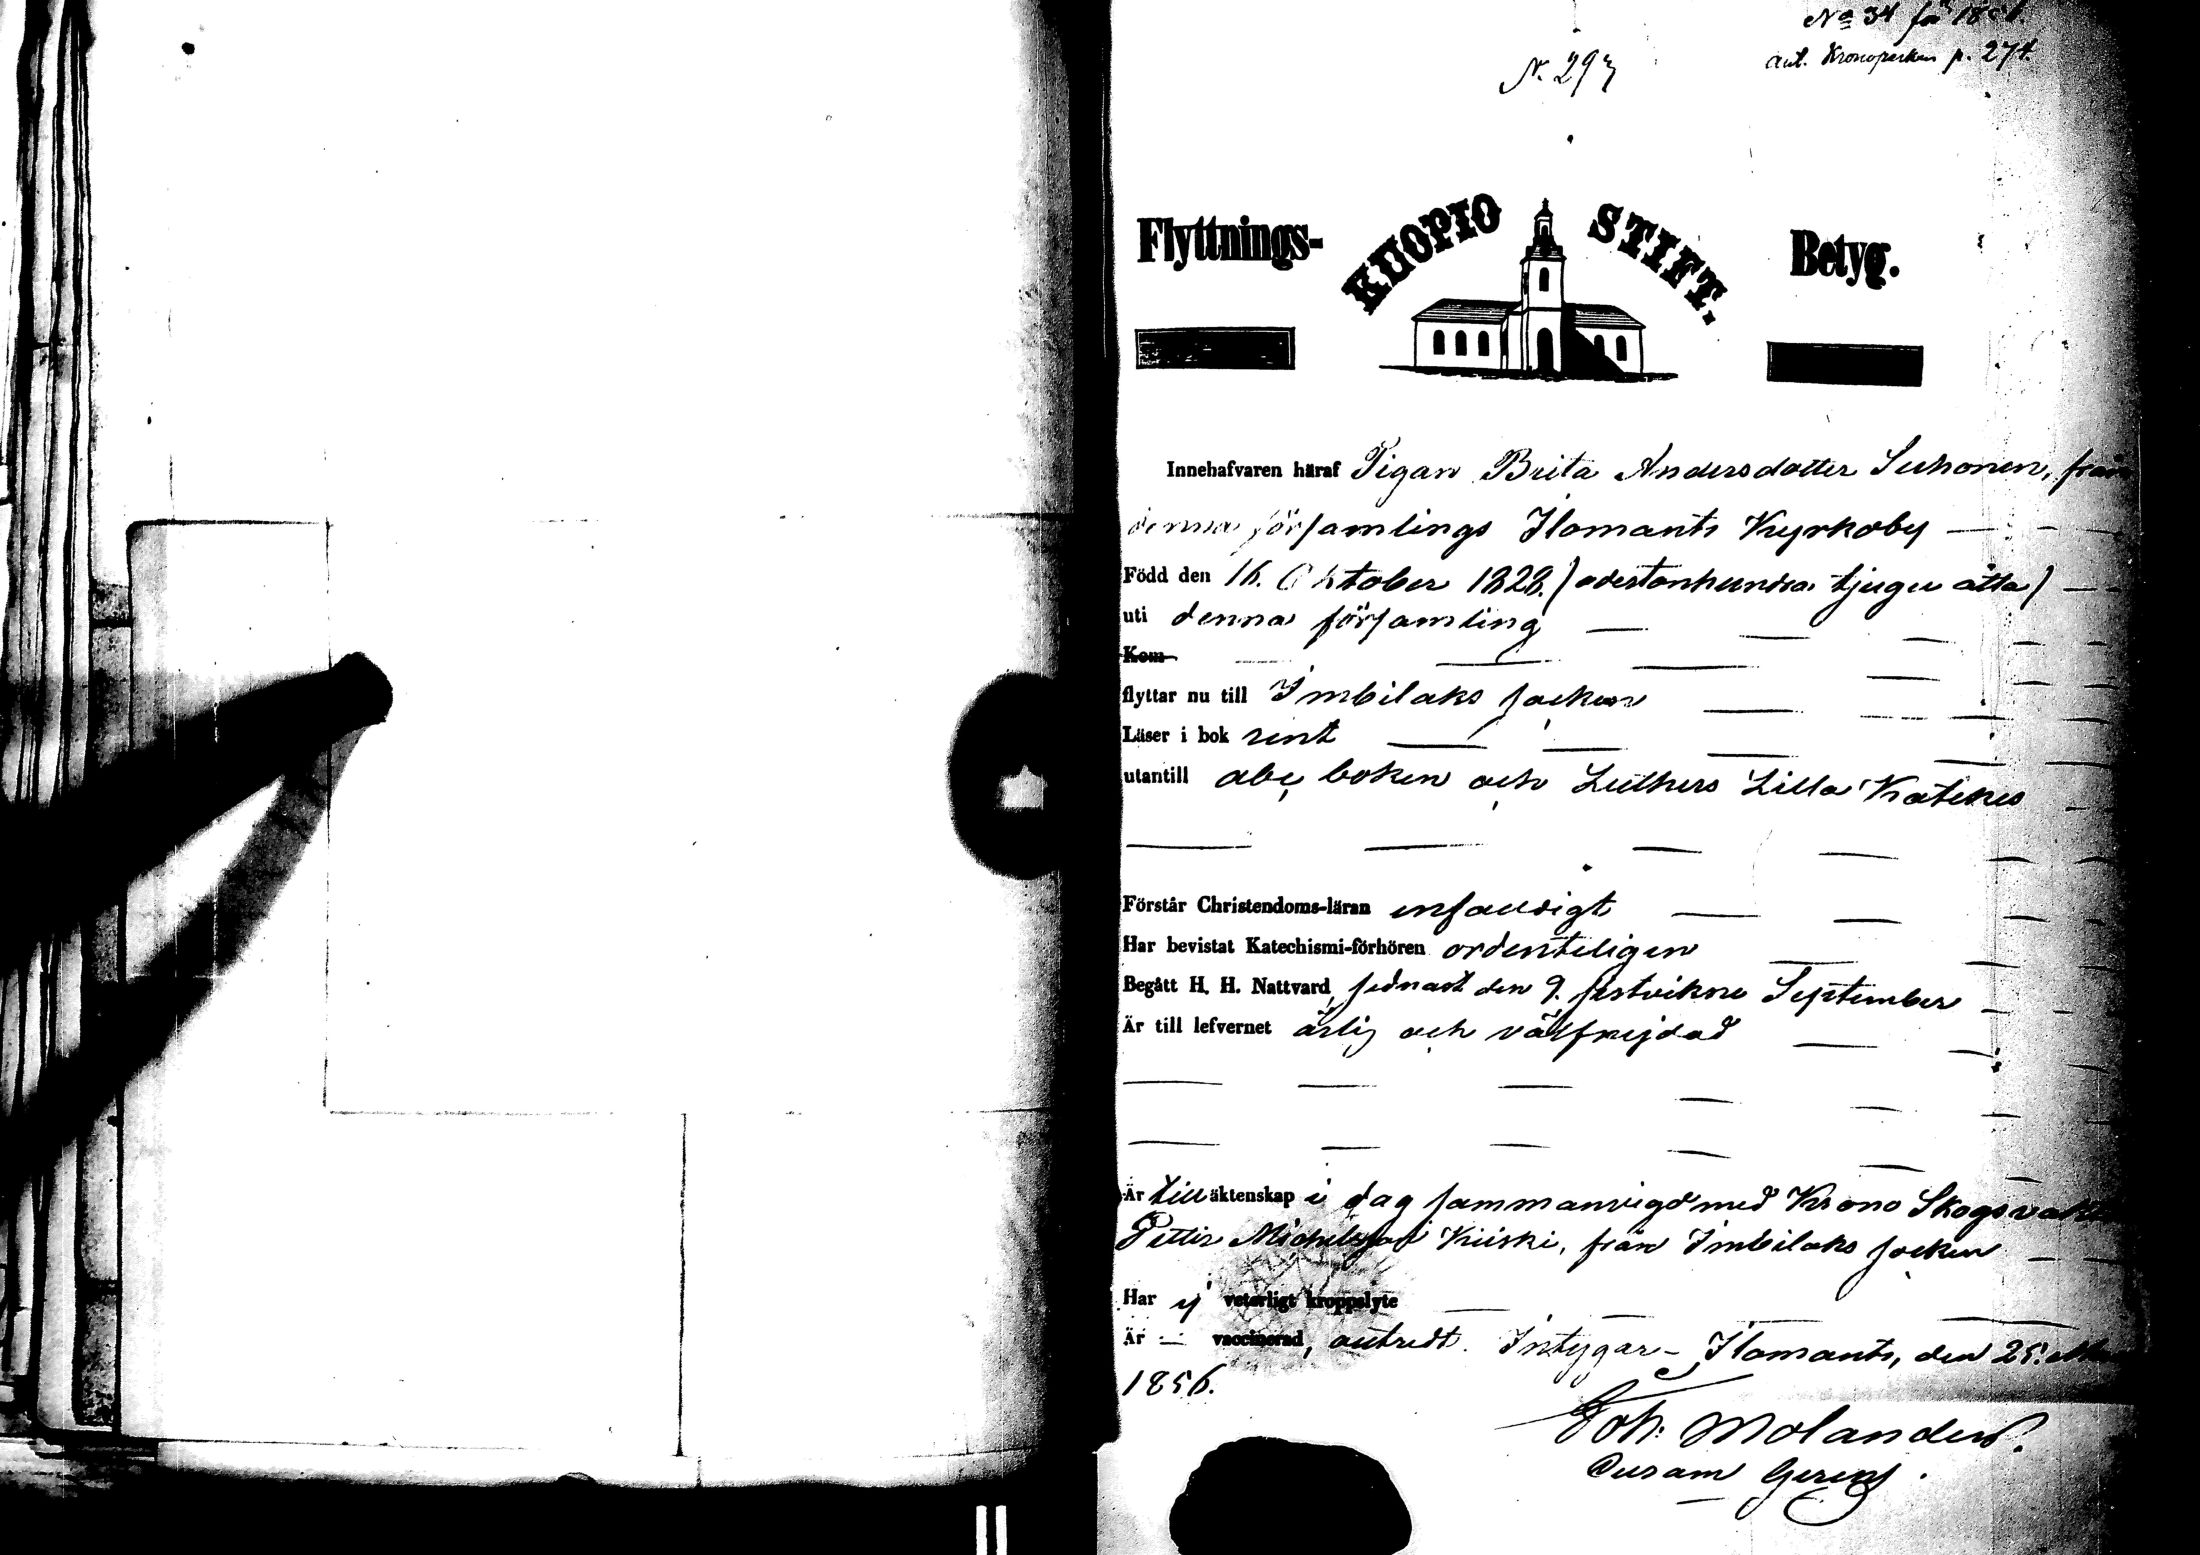 No 34 för 1856.
ant. Kronoparken p. 274.
N. 297
Flyttnings- KUOPIO STIFT. Betyg.
Innehafvaren häraf Pigan Brita Andersdotter Suhonen, från
denna församlings Ilomants Kyrkoby
Född den 16. Oktober 1828. (adertonhundra tjugu åtta)
uti denna församling
Kom
flyttar nu till Imbilaks socken
Läser i bok rent
utantill abc boken och Luthers Lilla Katekes
Förstår Christendoms-läran enfaldigt
Har bevistat Katechismi-förhören ordenteligen
Begått H. H. Nattvard, sednast den 9. sistvikne September
Är till lefvernet ärlig och välfrejdad
Är till äktenskap i dag sammanvigd med Krono Skogsvakten
Petter Michelsson Kiiski, från Imbilaks socken
Har ej veterligt kroppslyte
Är – vaccinerad, Intygar – Ilomants, den 25.
1856.
Joh: Molander.